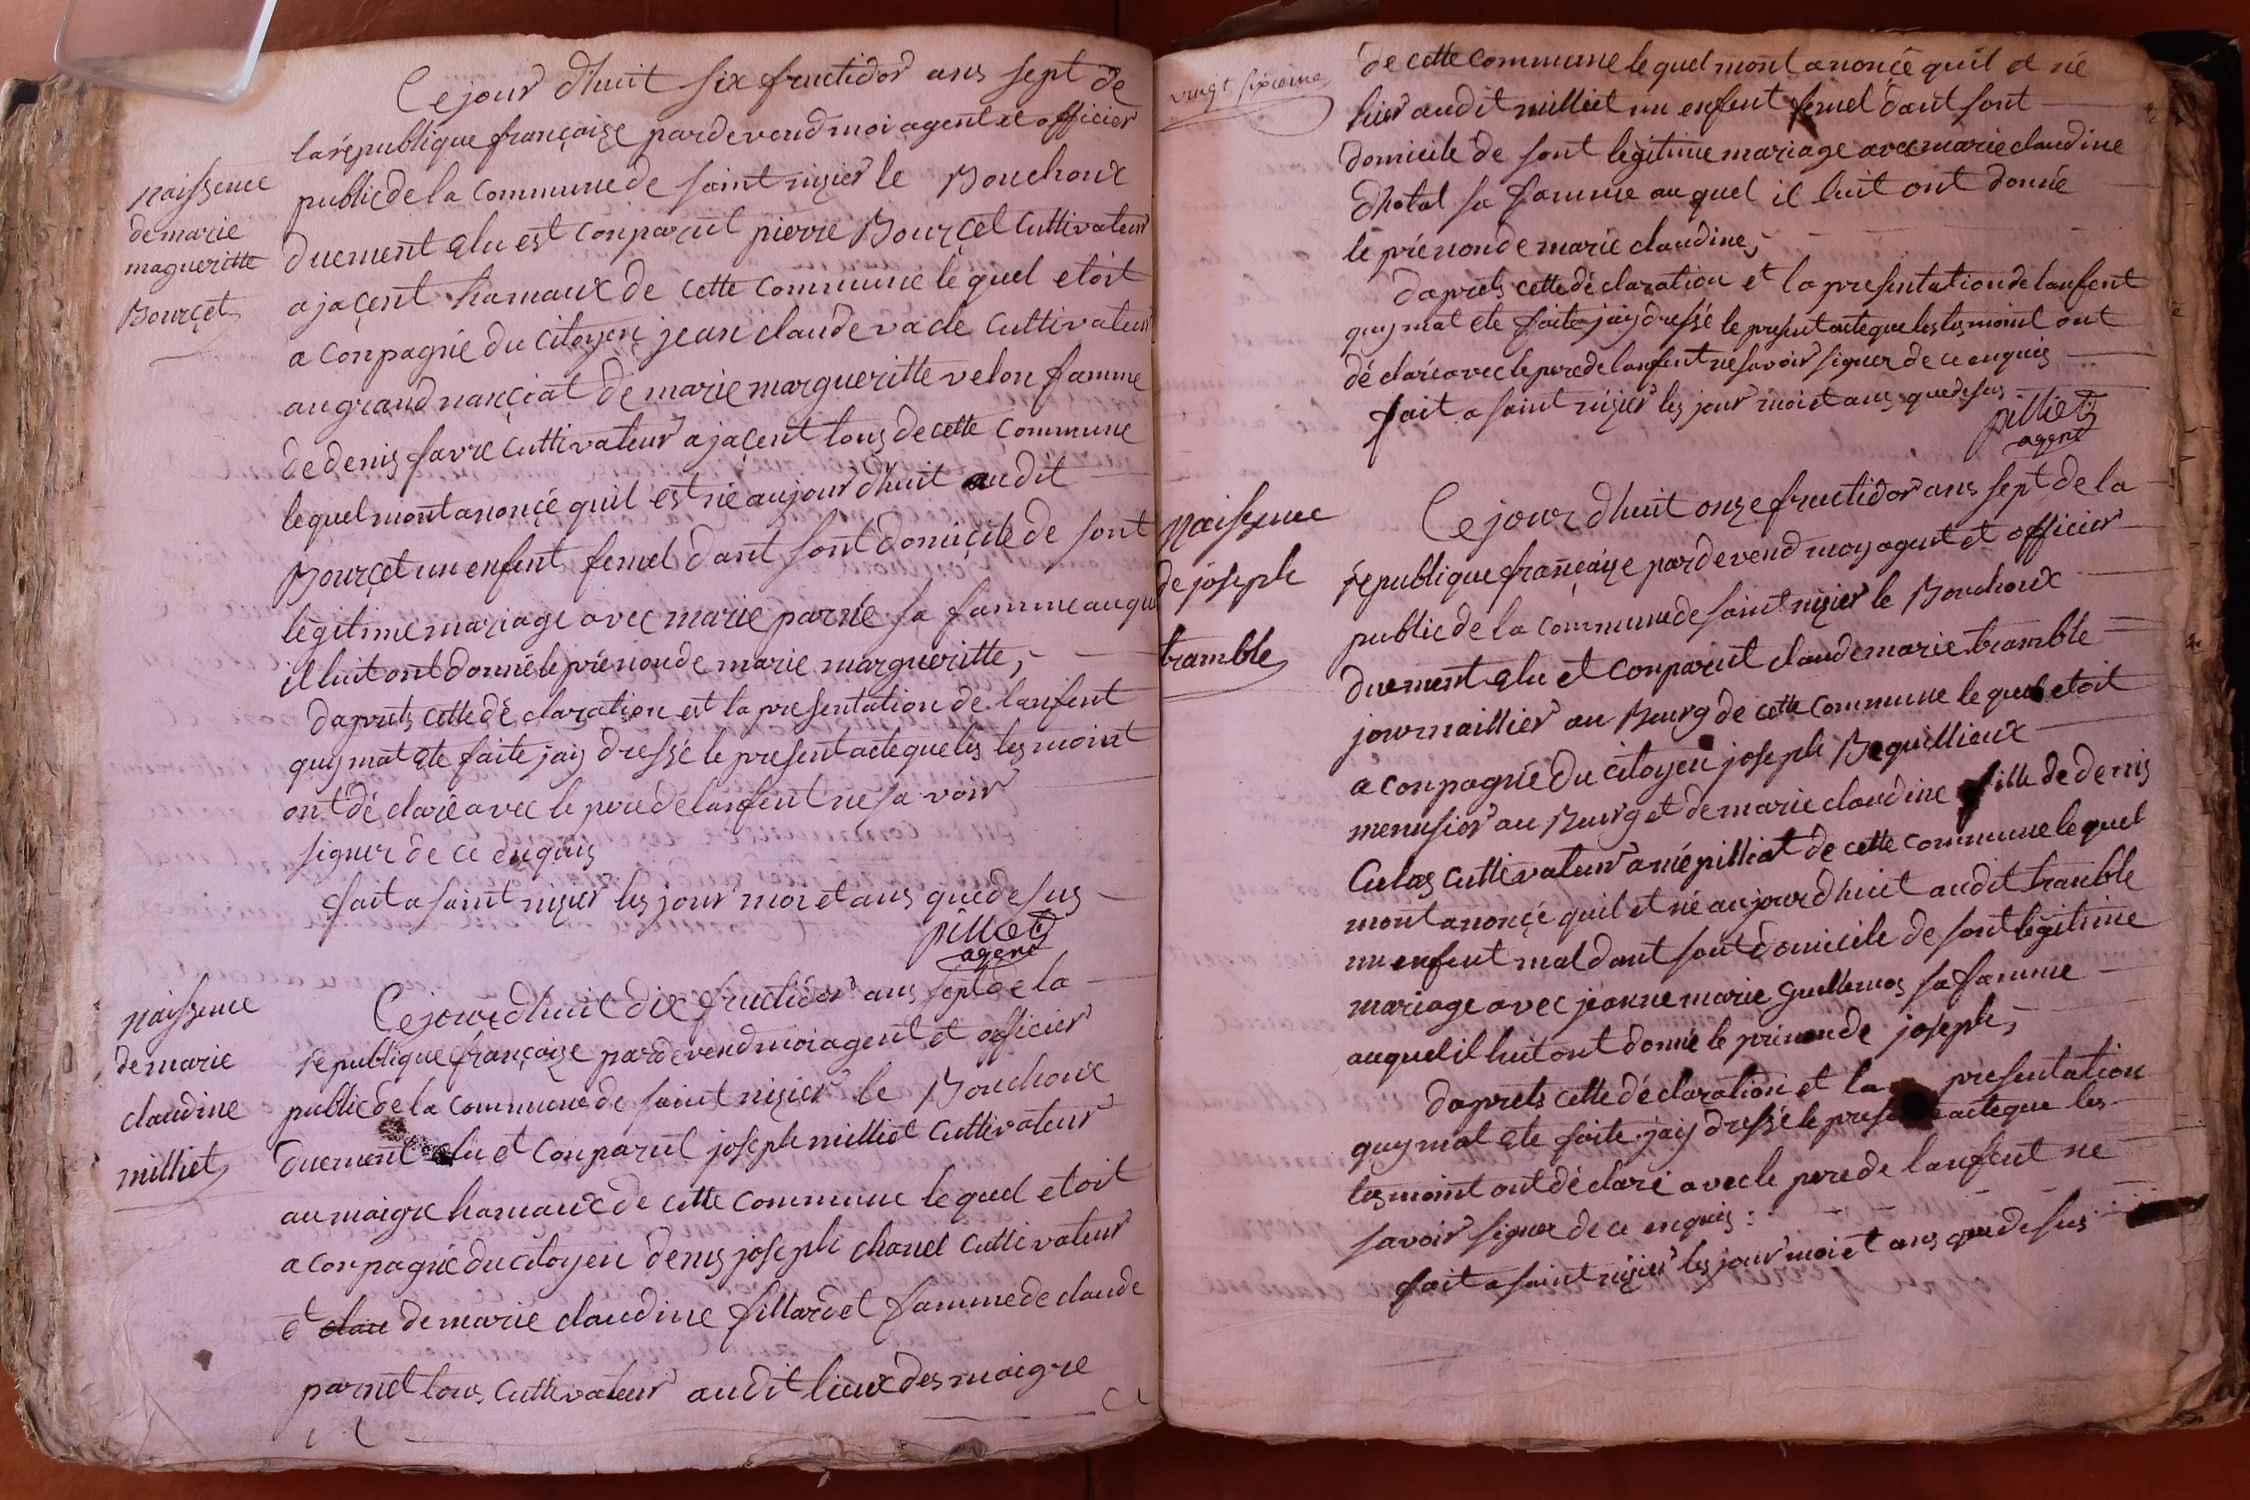 Ce jour dhuit six fructidor ans sept de
la république françaize pardevend moi agent et officier
public de la commune de saint nizier le Bouchoux
duement elu est conparut pierre Bourcet cultivateur
a jacent hamaux de cette commune le quel etoit
a conpagnié du citoyen jean claude vacle cuttivateur
au grand nanciat de marie margueritte velon famme
de denis favre cuttivateur a jacent tous de cette commune
lequel mont anoncé quil est né aujourdhuit audit
Bourcet un enfent femel dant sont domicile de sont
légitime mariage avec marie parné sa famme auqu
il luit ont donné le prénon de marie margueritte,
daprets cette déclaration et la presentation de lanfent
quy mat ete faite jaij dressé le present acte que les tesmoint
ont déclaré avec le pere de lanfent ne sa voir
signer de ce enquis
fait a saint nizier les jour moi et ans que desus
pilliet
agent
Naissence
de marie
magueritte
Bourcet
Ce jour dhuit dix fructidor ans sept de la
république françaize pardevend moi agent et officier
public de la commune de saint nizier le Bouchoux
duement elu et conparut joseph milliet cuttivateur
au maigre hamaux de cette commune le quel etoit
a conpagnié du citoyen denis joseph chanel cuttivateur
et clau de marie claudine fillardet famme de claude
parnet tous cuttivateur audit lieux des maigre
Naissence
de marie
claudine
milliet
vingt sixieme
de cette commune le quel mont anoncé quil et né
hier audit milliet un enfent femel dant sont
domicile de sont légitime mariage avec marie claudine
dhotal sa famme au quel il luit ont donné
le prénon de marie claudine,
daprets cette déclaration et la presentation de lanfent
quy mat ete faite jaij dressé le present acte que les tesmoint ont
déclaré avec le pere de lanfent ne savoir signer de ce enquis
fait a saint nizier les jour moi et ans que desus
pilliet
agent
Naissence
de joseph
tramble
Ce jour dhuit onze fructidor ans sept de la
république françaize pardevend moy agent et officier
public de la commune de saint nizier le Bouchoux
duement elu et conparut claude marie tramble
journaillier au Bourg de cette commune le quel etoit
a conpagnié du citoyen joseph Bequillieux
menusier au Bourg et de marie claudine fille de denis
Culas cuttivateur a népilliat de cette commune le quel
mont anoncé quil et né aujourdhuit audit tramble
un enfent mal dant sont domicile de sont légitime
mariage avec jeanne marie guillemos sa famme
auquel il luit ont donné le prénon de joseph,
daprets cette déclaration et la presentation
quy mat ete faite jaij dressé le prese acte que les
tesmoint ont déclaré avec le pere de lanfent ne
savoir signer de ce enquis :
fait a saint nizier les jour moi et ans que desus